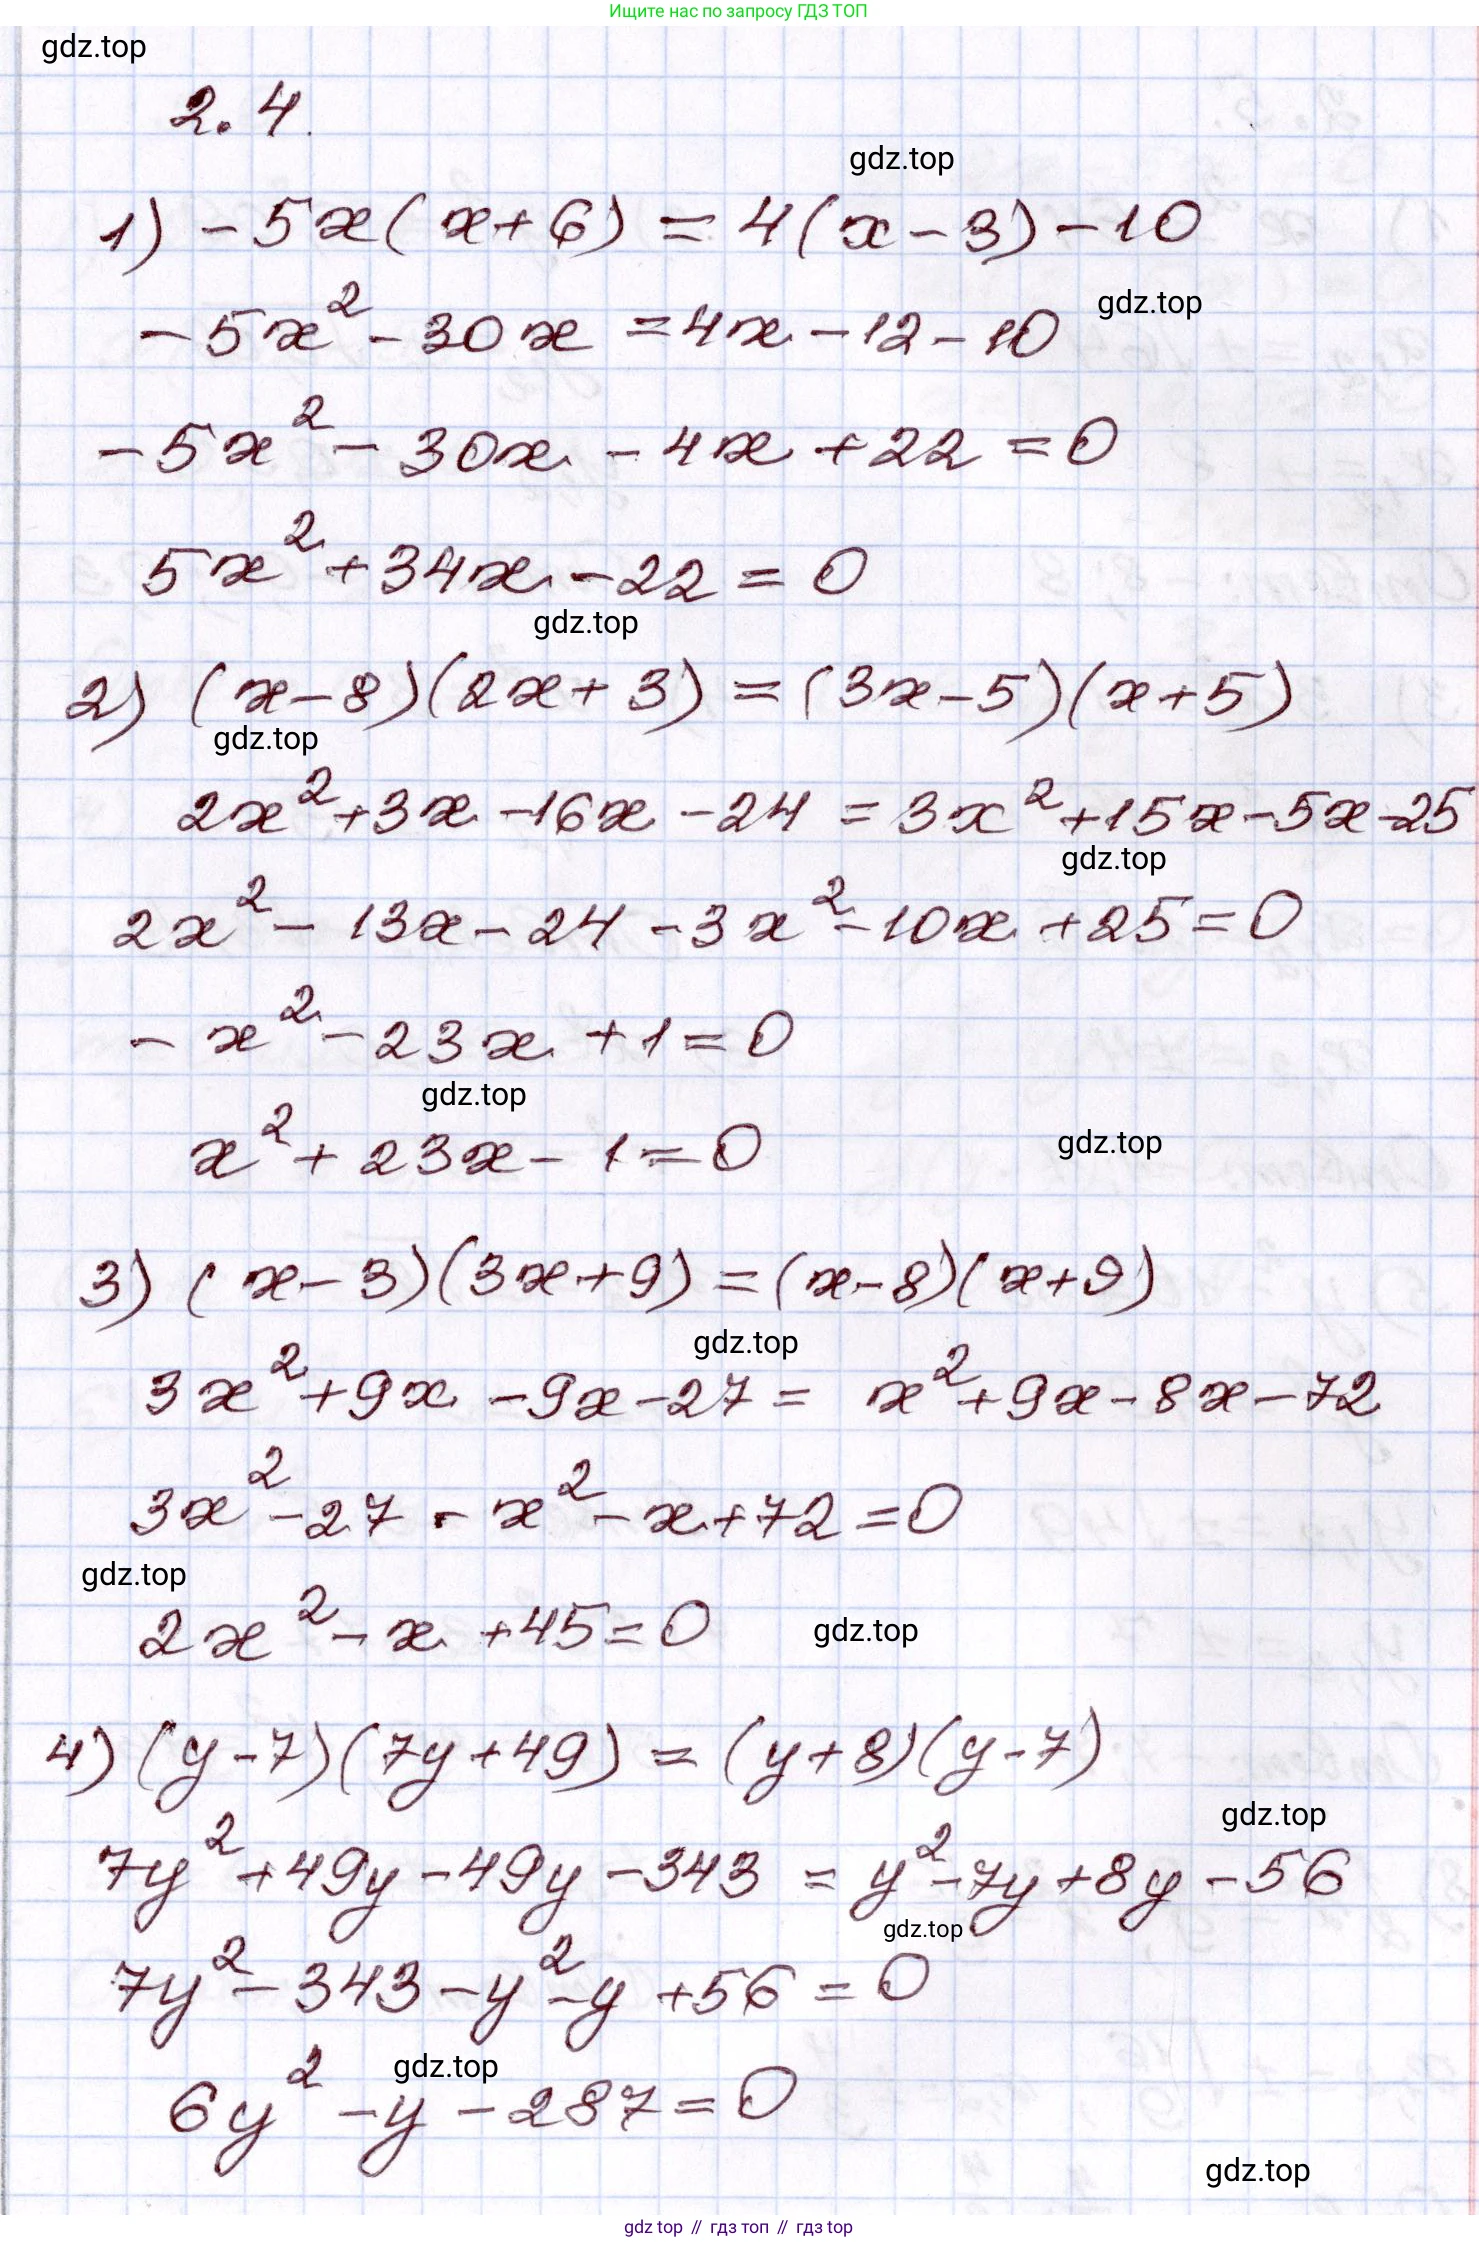 Ищите нас по запросу ГДЗ ТОП
gdz.top
2.4.
gdz.top
1) -5x(x+6) = 4(x-3)-10
gdz.top
-5x²-30x = 4x-12-10
-5x²-30x-4x+22=0
5x²+34x-22=0
gdz.top
2) (x-8)(2x+3)=(3x-5)(x+5)
gdz.top
2x²+3x-16x-24=3x²+15x-5x-25
gdz.top
2x²-13x-24-3x²-10x+25=0
-x²-23x+1=0
gdz.top
x²+23x-1=0
gdz.top
3) (x-3)(3x+9)=(x-8)(x+9)
gdz.top
3x²+9x-9x-27= x²+9x-8x-72
3x²-27-x²-x+72=0
gdz.top
2x²-x+45=0
gdz.top
4) (y-7)(7y+49)=(y+8)(y-7)
gdz.top
7y²+49y-49y-343=y²-7y+8y-56
gdz.top
7y²-343-y²-y+56=0
gdz.top
6y²-y-287=0
gdz.top
gdz top // гдз топ // гдз top